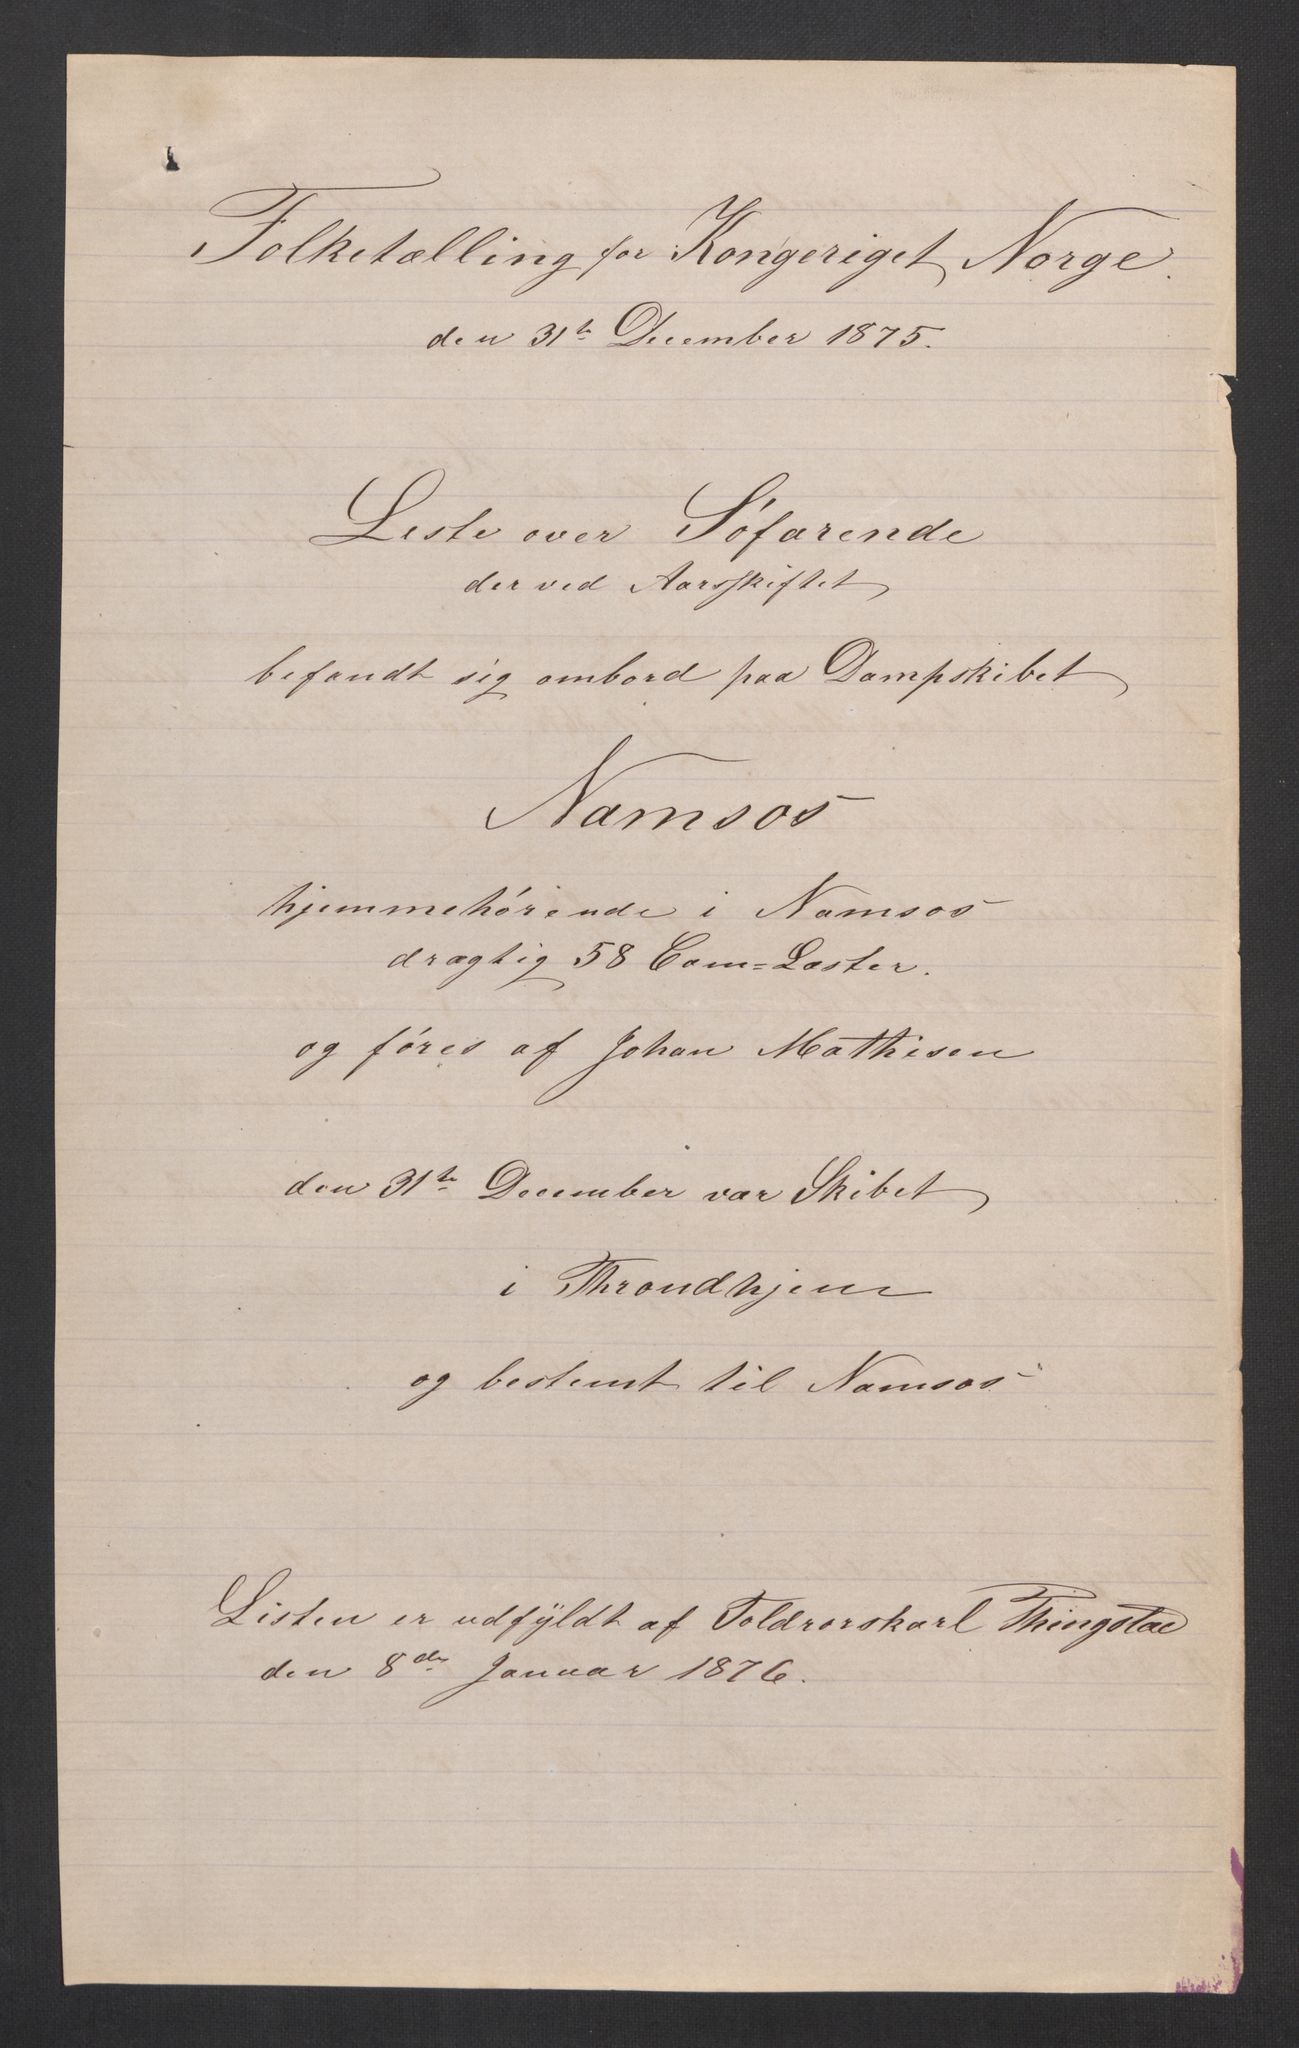 Folketælling for Kongeriget Norge.
den 31te December 1875.
Liste over Søfarende
der ved Aarsskiftet
befandt sig ombord paa Dampskibet
Namsos
hjemmehørende i Namsos
drægtig 58 Com=Læster.
og føres af Johan Mathisen
den 31te December var Skibet
i Throndhjem
og bestemt til Namsos
Listen er udfÿldt af Toldrorskarl Thingstad
den 8de Januar 1876.